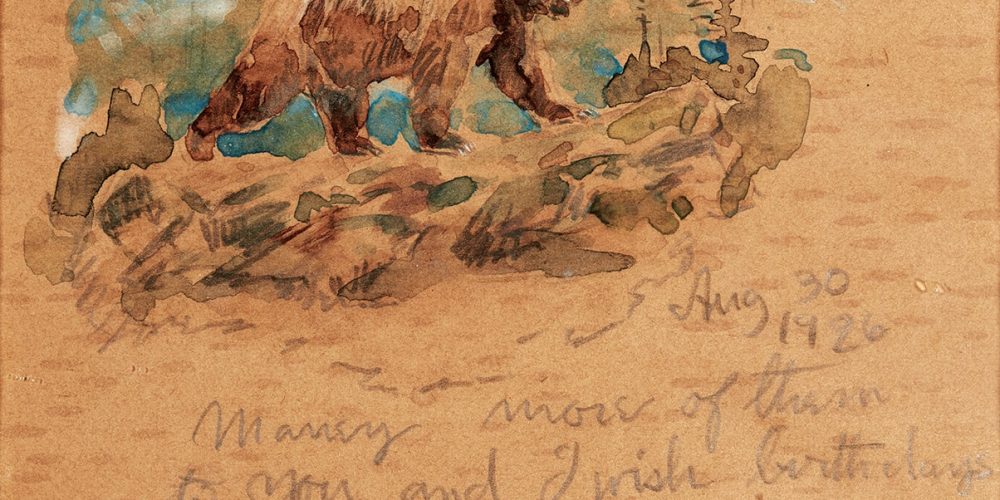 Aug 30
1926
Maney more of them
to you and I wish birthdays